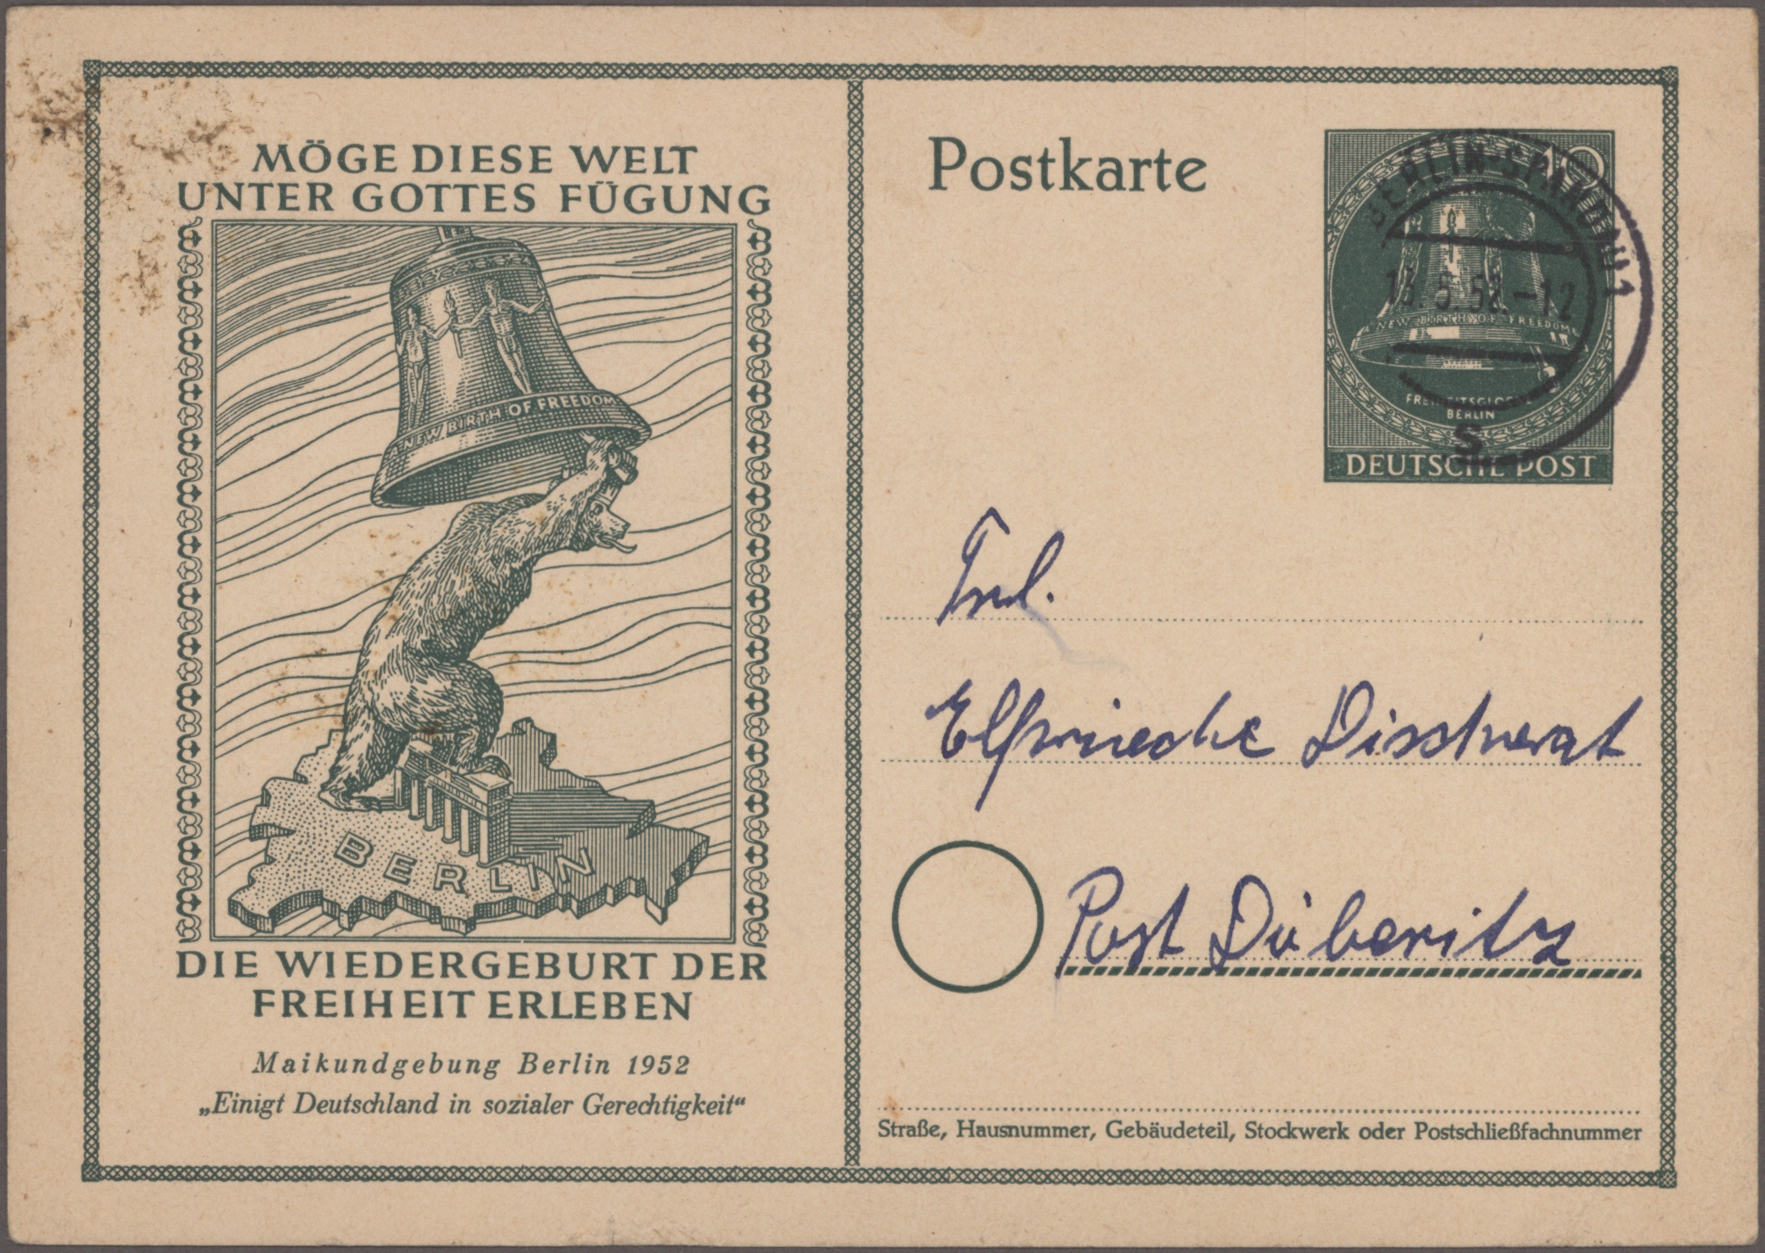 MÖGE DIESE WELT
UNTER GOTTES FÜGUNG
NEW BIRTH OF FREEDOM
BERLIN
DIE WIEDERGEBURT DER
FREIHEIT ERLEBEN
Maikundgebung Berlin 1952
„Einigt Deutschland in sozialer Gerechtigkeit“
Postkarte
10
NEW BIRTH OF FREEDOM
FREIHEITSGLOCKE
BERLIN
DEUTSCHE POST
BERLIN-SPANDAU 1
13.5.52.-12
S
Frl.
Elfriede
Post Döberitz
Straße, Hausnummer, Gebäudeteil, Stockwerk oder Postschließfachnummer